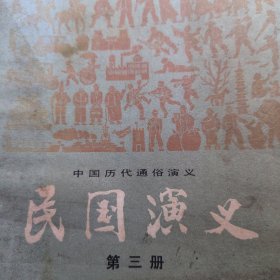 中国历代通俗演义
民国演义
第三册